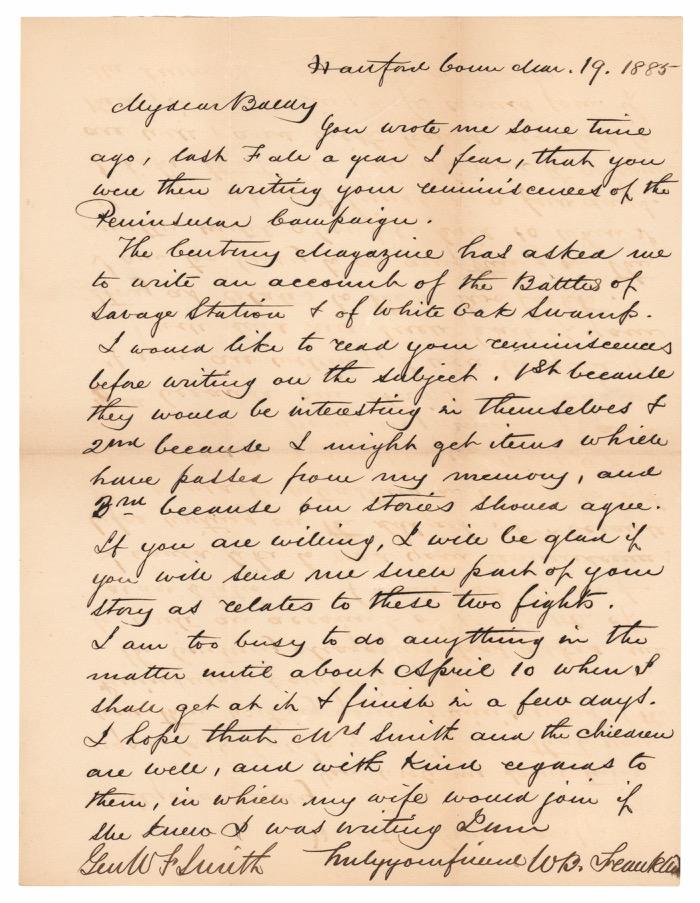 Hartford Conn Mar. 19. 1885
My dear Baldy
You wrote me some time
ago, last Fall a year I fear, that you
were then writing your reminiscences of the
Peninsular Campaign.
The Century Magazine has asked me
to write an account of the Battles of
Savage Station & of White Oak Swamp.
I would like to read your reminiscences
before writing on the subject. 1st because
they would be interesting in themselves &
2nd because I might get items which
have passed from my memory, and
3rd because our stories should agree.
If you are willing, I will be glad if
you will send me such part of your
story as relates to these two fights.
I am too busy to do anything in the
matter until about April 10 when I
shall get at it & finish in a few days.
I hope that Mrs Smith and the children
are well, and with kind regards to
them, in which my wife would join if
she knew I was writing I am
Gen W F Smith Truly your friend W B. Franklin